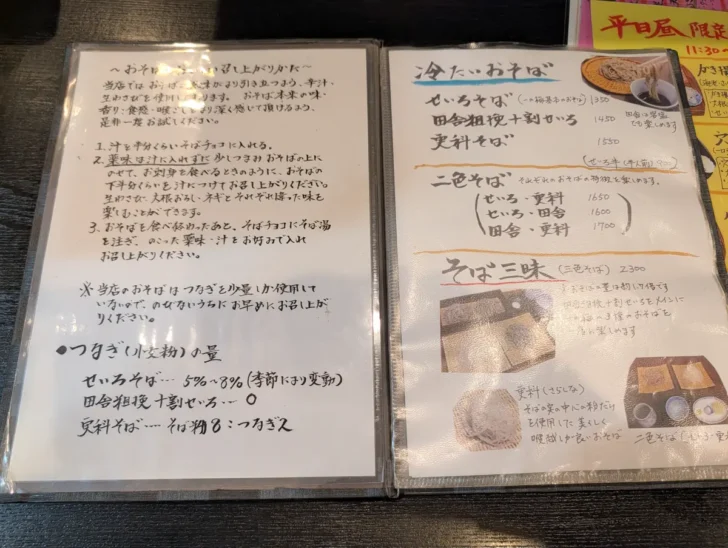 ～おそばの 召し上がりかた～
当店では おそば 本来の味がより引き立つよう、辛汁、
生わさびを使用しております。 おそば本来の味・
香り・食感・喉ごしをより深く感じて頂けるよう、
是非一度お試しください。
1. 汁を半分くらいそばチョコに入れる。
2. 薬味は汁に入れずに少しつまみ おそばの上に
のせて、お刺身を食べるときのように、おそばの
下半分くらいを汁につけてお召し上がりください。
生わさび・大根おろし・ネギとそれぞれ違った味を
楽しむことができます。
3. おそばを食べ終わったあと、そばチョコにそば湯
を注ぎ、のこった薬味・汁をお好みで入れ
お召し上がりください。
※当店のおそばは つなぎを少量しか使用して
いないので、のびないうちにお早めにお召し上が
りください。
●つなぎ(小麦粉)の量
せいろそば… 5%~8%(季節により変動)
田舎粗挽十割せいろ… 0
更科そば…そば粉8:つなぎ2
冷たいおそば
せいろそば (一番基本のおそば) 1350
田舎粗挽十割せいろ 1450
更科そば 1550
二色そば それぞれのおそばの特徴を楽しめます。
せいろ・更科 1650
せいろ・田舎 1600
田舎・更科 1700
そば三昧 (三色そば) 2300
おそばの量は約1.5倍です
田舎粗挽十割せいろをメインに
一度に楽しめます
更科(さらしな)
そばの実の中心の粉だけ
を使用した美しく
喉越しの良いおそば
二色そば
平日昼 限定
11:30